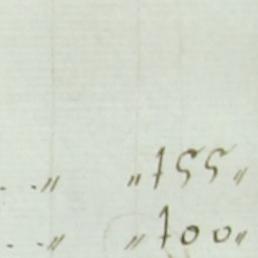 . . " " 155 "
. . " " 100 "